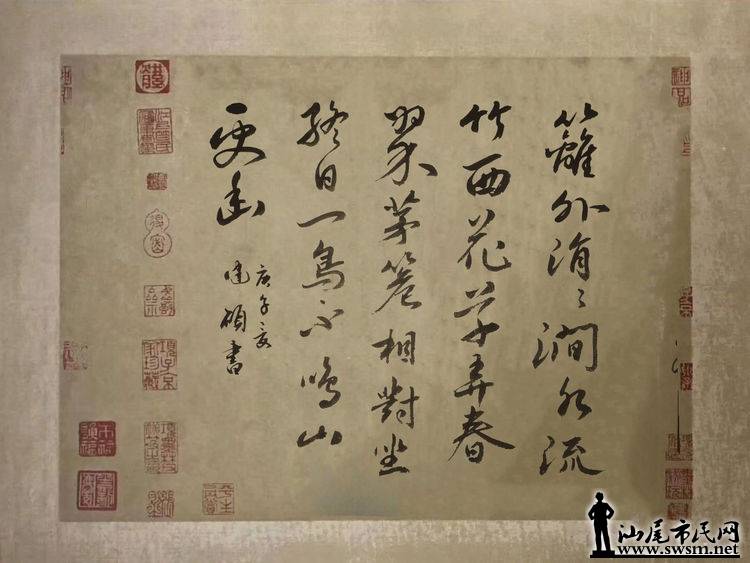 籬外涓〻澗水流
竹西花草弄春
柔茅簷相對坐
終日一鳥不鳴山
更幽
庚子夏
建碩書
汕尾市民网
www.swsm.net